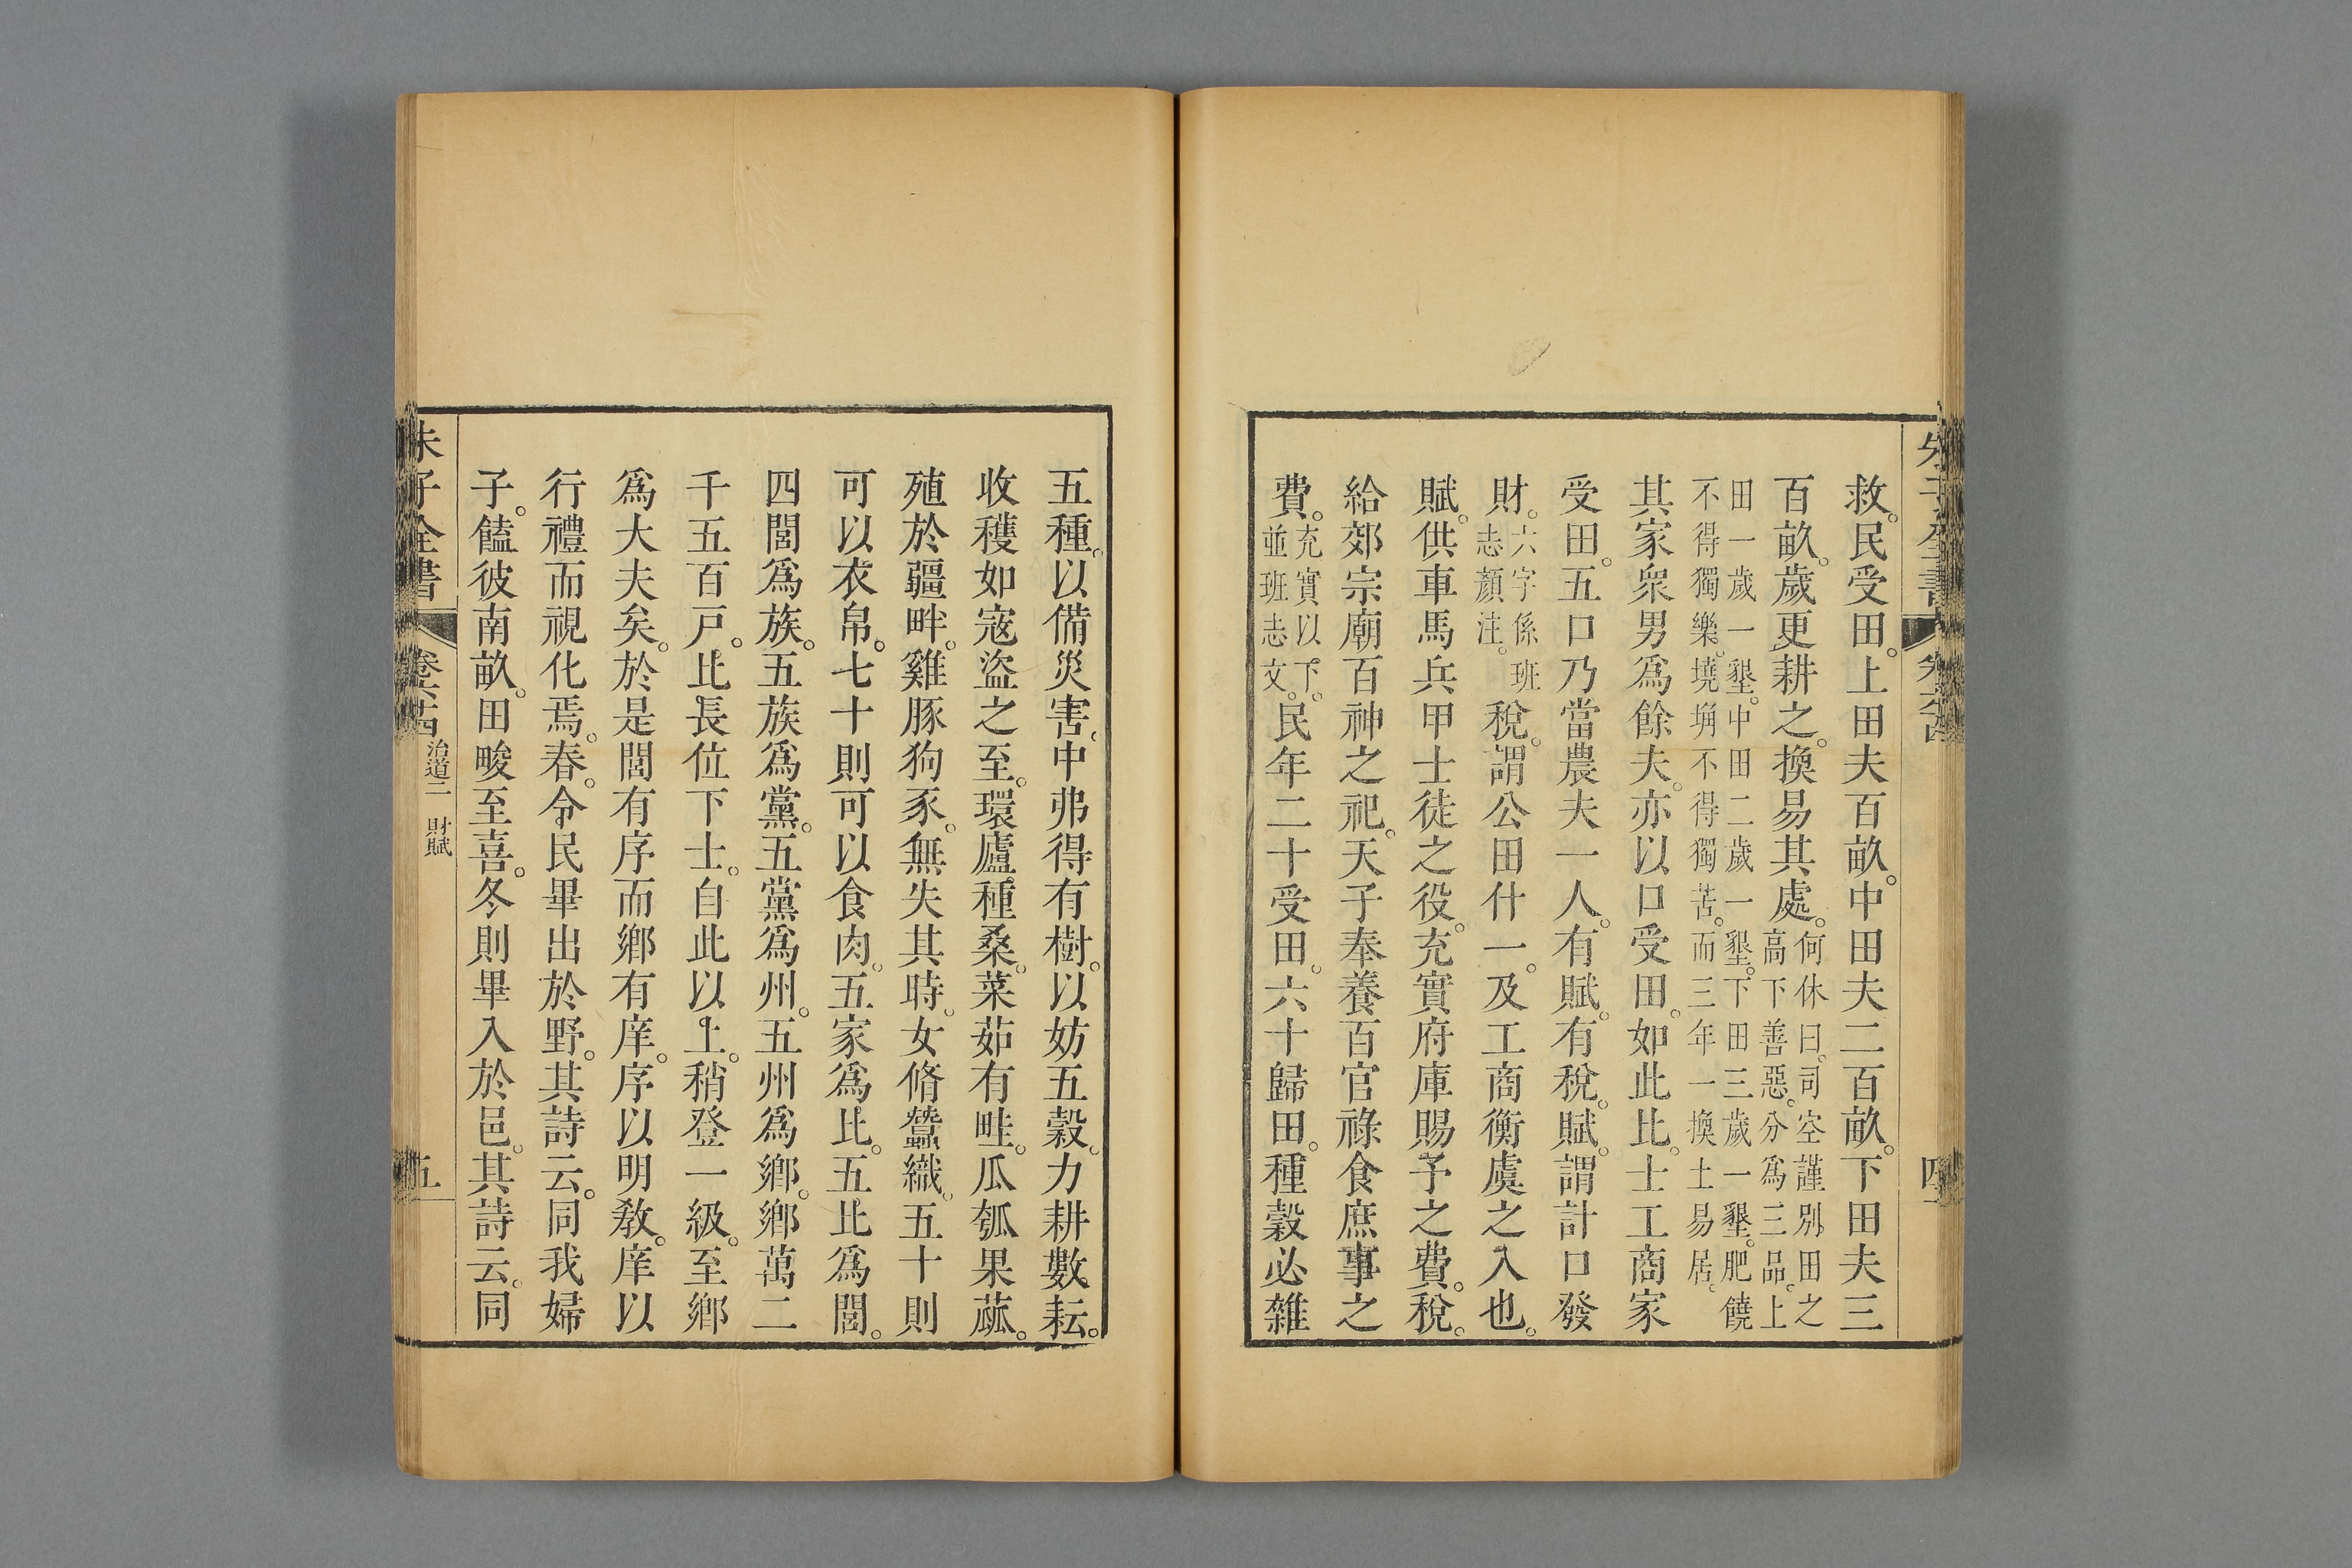 朱子全書 卷六十四 四
救。民受田。上田夫百畝。中田夫二百畝。下田夫三
百畝。歲更耕之。換易其處。何休曰。司空謹別田之
高下善惡。分為三品。上
田一歲一墾。中田二歲一墾。下田三歲一墾。肥饒
不得獨樂。墝埆不得獨苦。而三年一換土易居。
其家衆男為餘夫。亦以口受田。如此比。士工商家
受田。五口乃當農夫一人。有賦。有稅。賦。謂計口發
財。六字係班
志顏注。稅。謂公田什一。及工商衡虞之入也。
賦。供車馬兵甲士徒之役。充實府庫賜予之費。稅。
給郊宗廟百神之祀。天子奉養百官祿食庶事之
費。充實以下。
並班志文。民年二十受田。六十歸田。種穀必雜
五種。以備災害。中弗得有樹。以妨五穀。力耕數耘。
收穫如寇盜之至。環廬種桑。菜茹有畦。瓜瓠果蓏。
殖於疆畔。雞豚狗豕。無失其時。女脩蠶織。五十則
可以衣帛。七十則可以食肉。五家為比。五比為閭。
四閭為族。五族為黨。五黨為州。五州為鄉。鄉萬二
千五百戶。比長位下士。自此以上。稍登一級。至鄉
為大夫矣。於是閭有序而鄉有庠。序以明教。庠以
行禮而視化焉。春。令民畢出於野。其詩云。同我婦
子。饁彼南畝。田畯至喜。冬則畢入於邑。其詩云。同
朱子全書 卷六十四 治道二 財賦 五